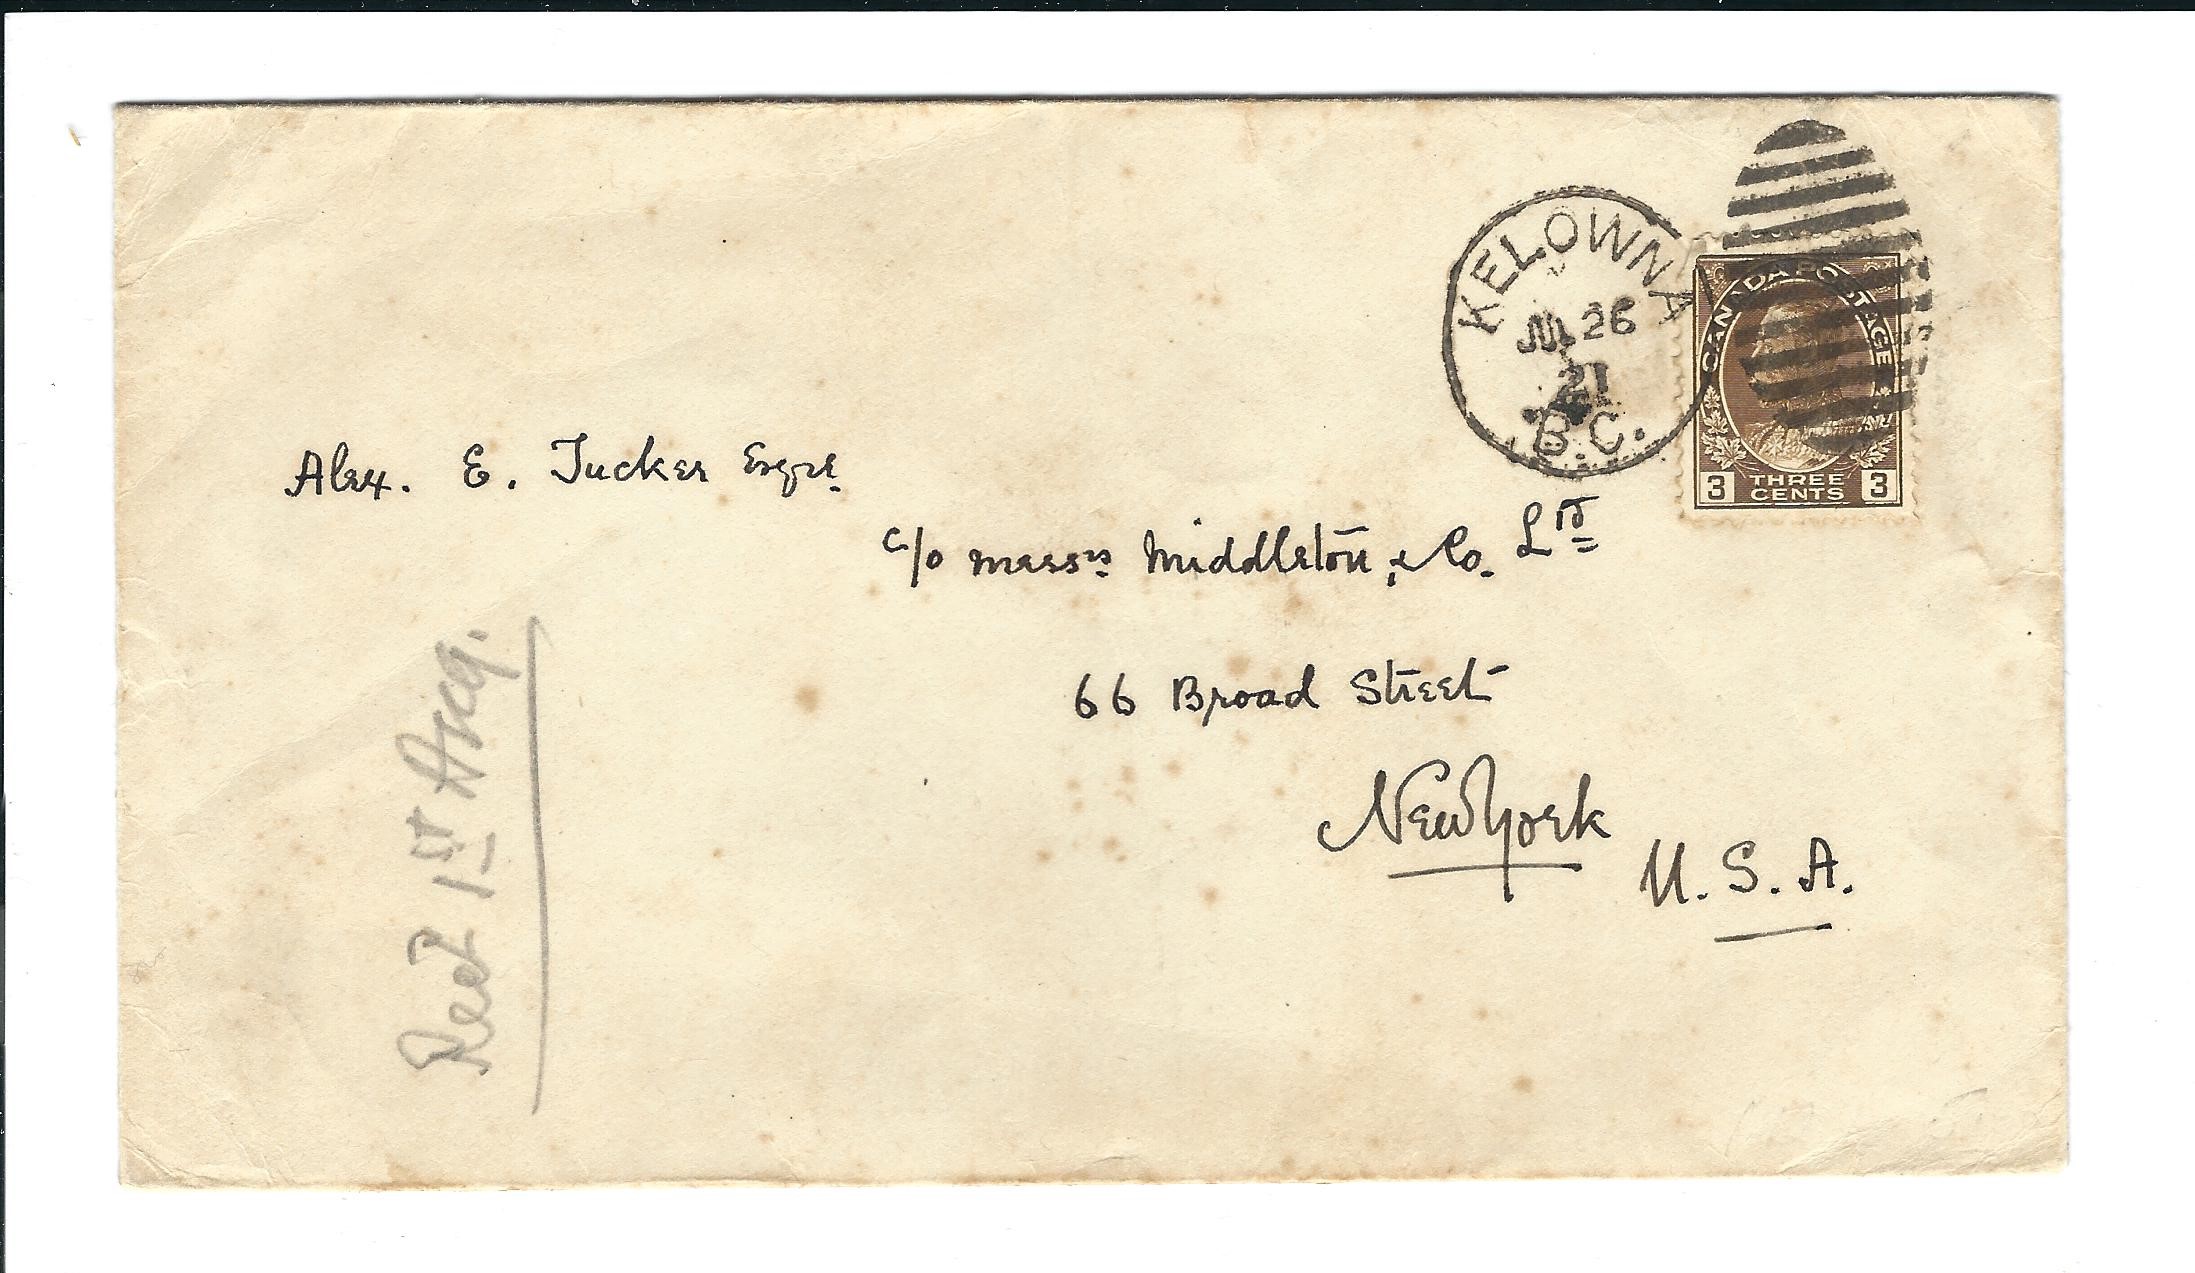 KELOWNA
JUL 26
21
B.C.
CANADA POSTAGE
3 THREE CENTS 3
Alex. E. Tucker Esqre.
c/o Messrs Middleton, & Co. Ltd
66 Broad Street
New York
U.S.A.
Recd 1st Aug.